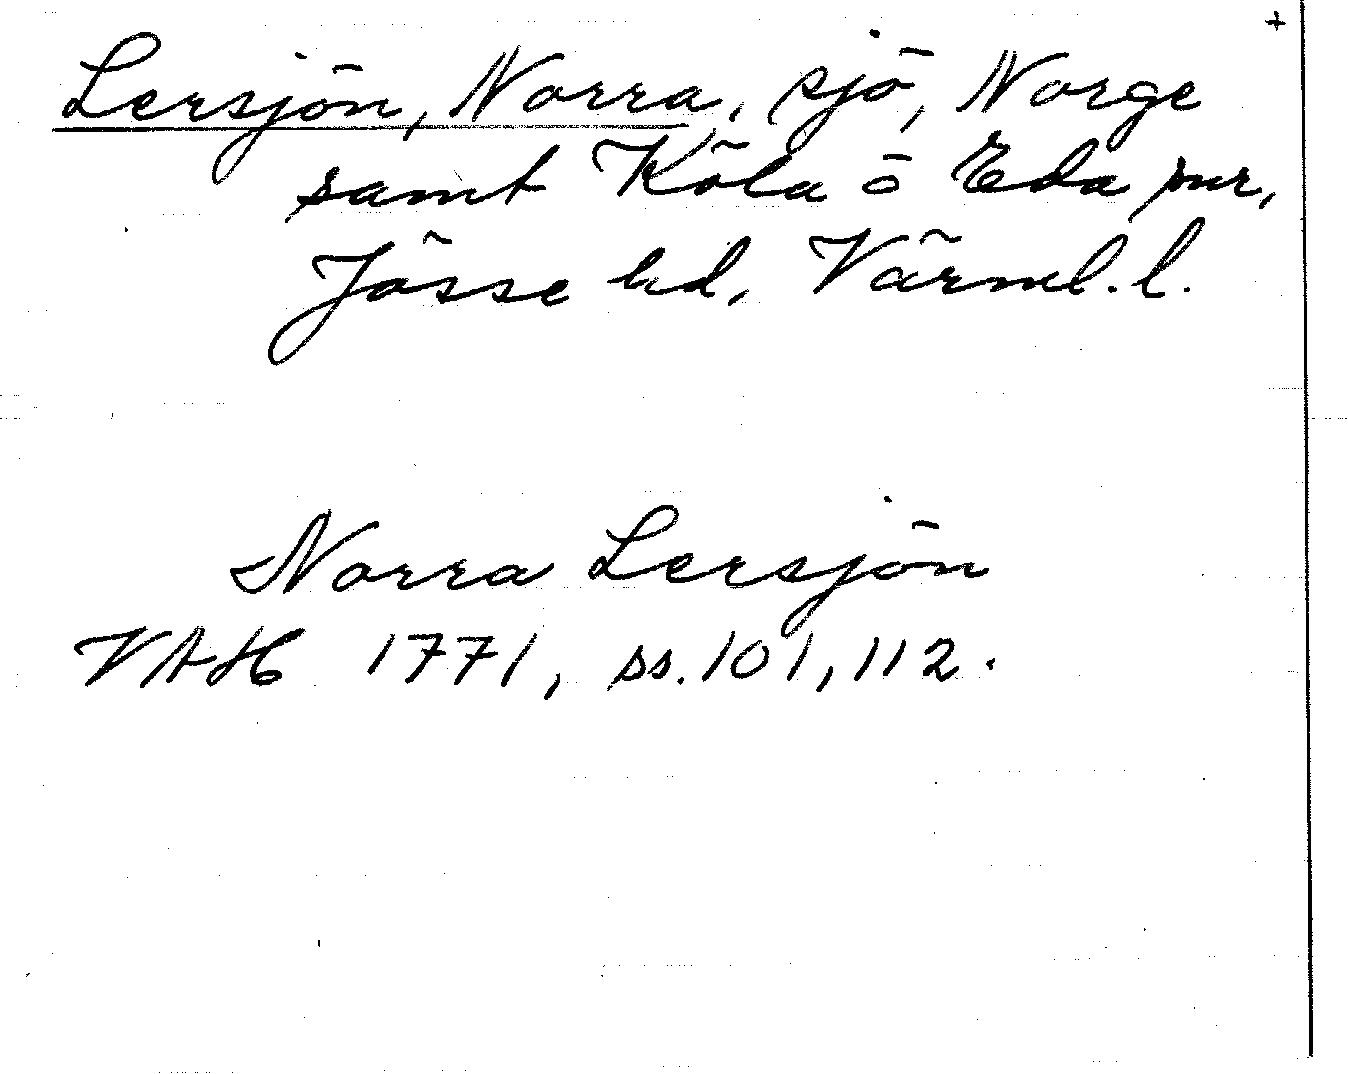 +
Lersjön, Norra, sjö, Norge
samt Köla o Eda snr,
Jösse hd, Värml. l.
Norra Lersjön
VAH 1771, ss. 101, 112.